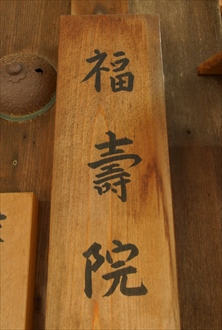 福壽院